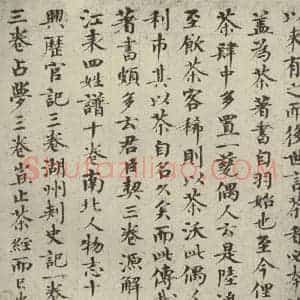 以来有之而後世
盖為茶著書自羽始也至今俚
茶肆中多置一甆偶人云是陸
至飲茶客稀則以茶沃此偶人
利市其以茶自名久矣而此傳
著書頗多云君臣契三卷源解
江東四姓譜十卷南北人物志十
興歷官記三卷湖州刺史記一卷
三卷占夢三卷豈止茶經而已也